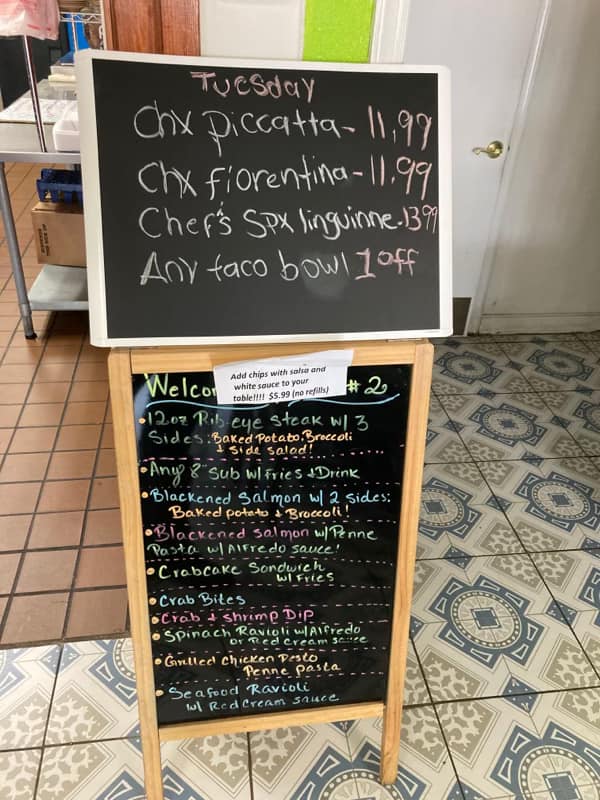 Tuesday
Chx piccatta - 11.99
Chx fiorentina - 11.99
Chef's Spx linguinne - 13.99
Any taco bowl 1 off
Add chips with salsa and
white sauce to your
table!!!! $5.99 (no refills)
Welco # 2
• 12oz Rib-eye steak w/ 3
Sides: Baked Potato, Broccoli
+ side salad!
• Any 8" Sub w/ Fries + Drink
• Blackened Salmon w/ 2 sides:
Baked potato + Broccoli!
• Blackened salmon w/ Penne
Pasta w/ Alfredo sauce!
• Crabcake Sandwich
w/ Fries
• Crab Bites
• Crab + shrimp Dip
• Spinach Ravioli w/ Alfredo
or Red cream sauce
• Grilled chicken Pesto
Penne pasta
• Seafood Ravioli
w/ Red Cream sauce